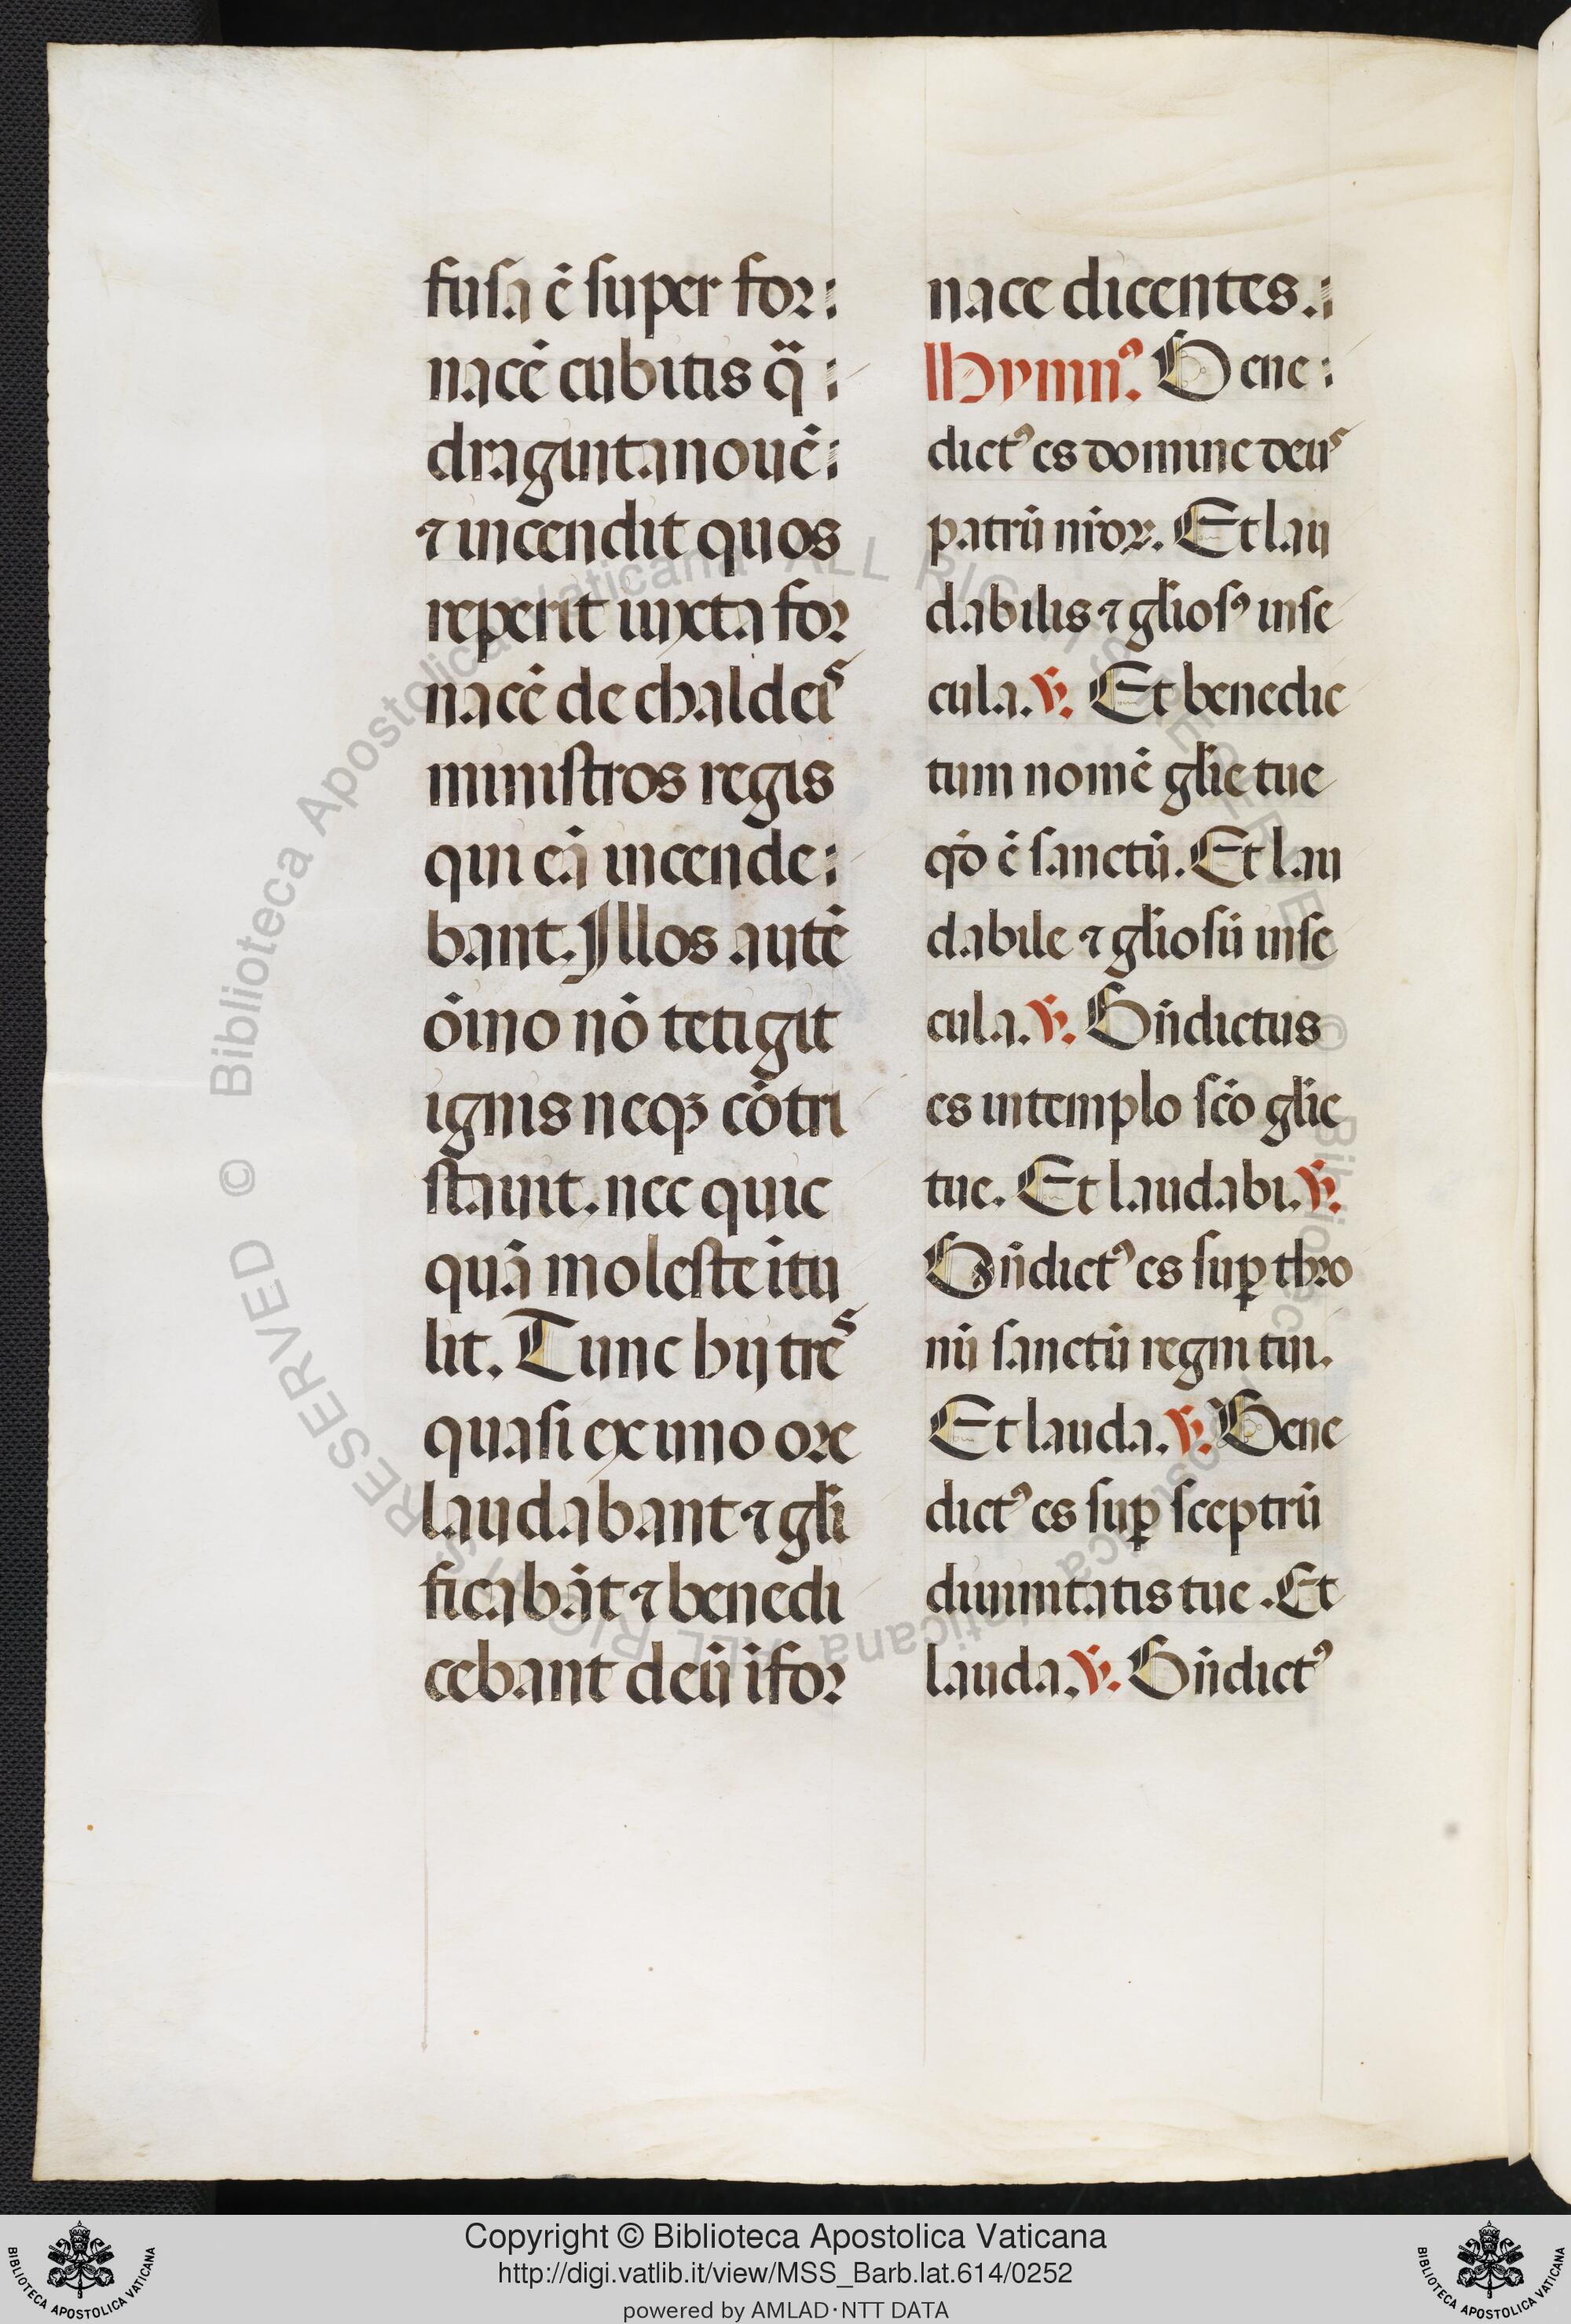 fusa ē super for:
nacē cubitis q̈:
dragintanouē:
⁊ incendit quos
reperit iuxta for
nacē de chaldeis
ministros regis
qui eā incende:
bant. Illos autē
oīno nō tetigit
ignis neqꝫ cōtri
stauit. nec quic
quā moleste itu
lit. Tunc hij tres
quasi ex uno ore
laudabant ⁊ głi
ficabāt ⁊ benedi
cebant deū ī for
nace dicentes.:
Hymnꝰ. Bene:
dictꝰ es domine deus
patrū nr̄oꝝ. Et lau
dabilis ⁊ gliosꝰ in se
cula. ℣. Et benedic
tum nomē glie tue
qđ ē sanctū. Et lau
dabile ⁊ gliosū in se
cula. ℣. Bn̄dictus
es in templo scō glie
tue. Et laudabi. ℣.
Bn̄dictꝰ es suꝑ thro
nū sanctū regni tui.
Et lauda. ℣. Bene
dictꝰ es suꝑ sceptrū
diuinitatis tue. Et
lauda. ℣. Bn̄dictꝰ
© Biblioteca Apostolica Vaticana ALL RIGHTS RESERVED
Copyright © Biblioteca Apostolica Vaticana
http://digi.vatlib.it/view/MSS_Barb.lat.614/0252
powered by AMLAD·NTT DATA
BIBLIOTECA APOSTOLICA VATICANA
BIBLIOTECA APOSTOLICA VATICANA